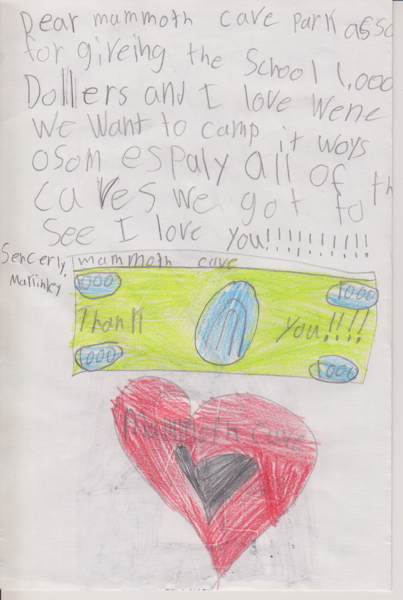 Dear mammoth cave park asso
for giveing the School 1,000
Dolllers and I love wene
we want to camp it woys
osom espaly all of th
caves we got to
see I love you!!!!!!!!!!
Sencerly,
mammoth cave
1000 1000
Thank you!!!!
1000 1000
Mammoth cave